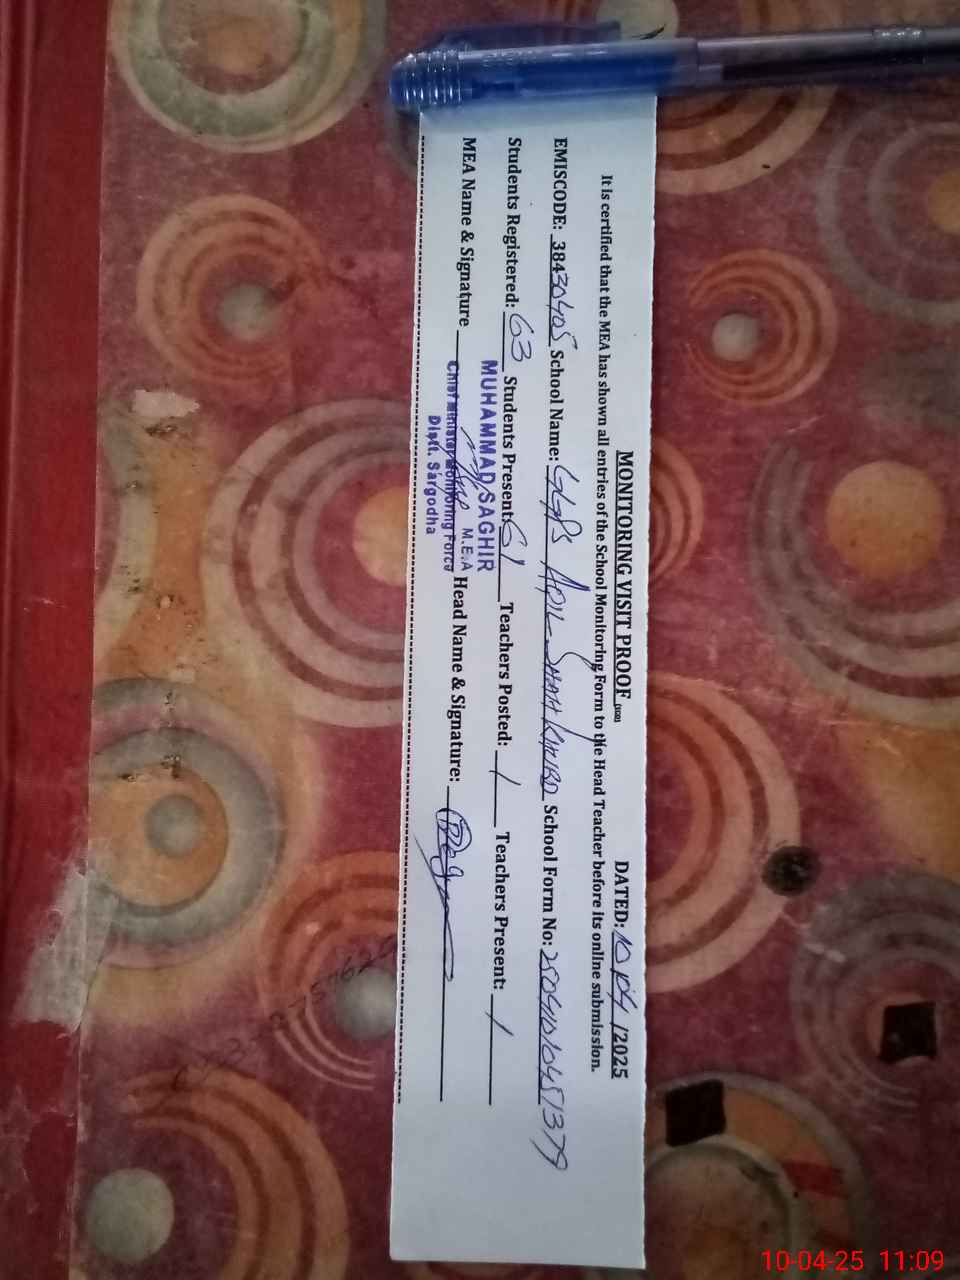 MONITORING VISIT PROOF DATED: 10/04/2025
It is certified that the MEA has shown all entries of the School Monitoring Form to the Head Teacher before its online submission.
EMISCODE: 38430405 School Name: GGPS ADIL SHAH School Form No:
Students Registered: 63 Students Present: 61 Teachers Posted: 1 Teachers Present: 1
MUHAMMAD SAGHIR
M.E.A
MEA Name & Signature Chief Minister Monitoring Force Head Name & Signature:
Distt. Sargodha
10-04-25 11:09